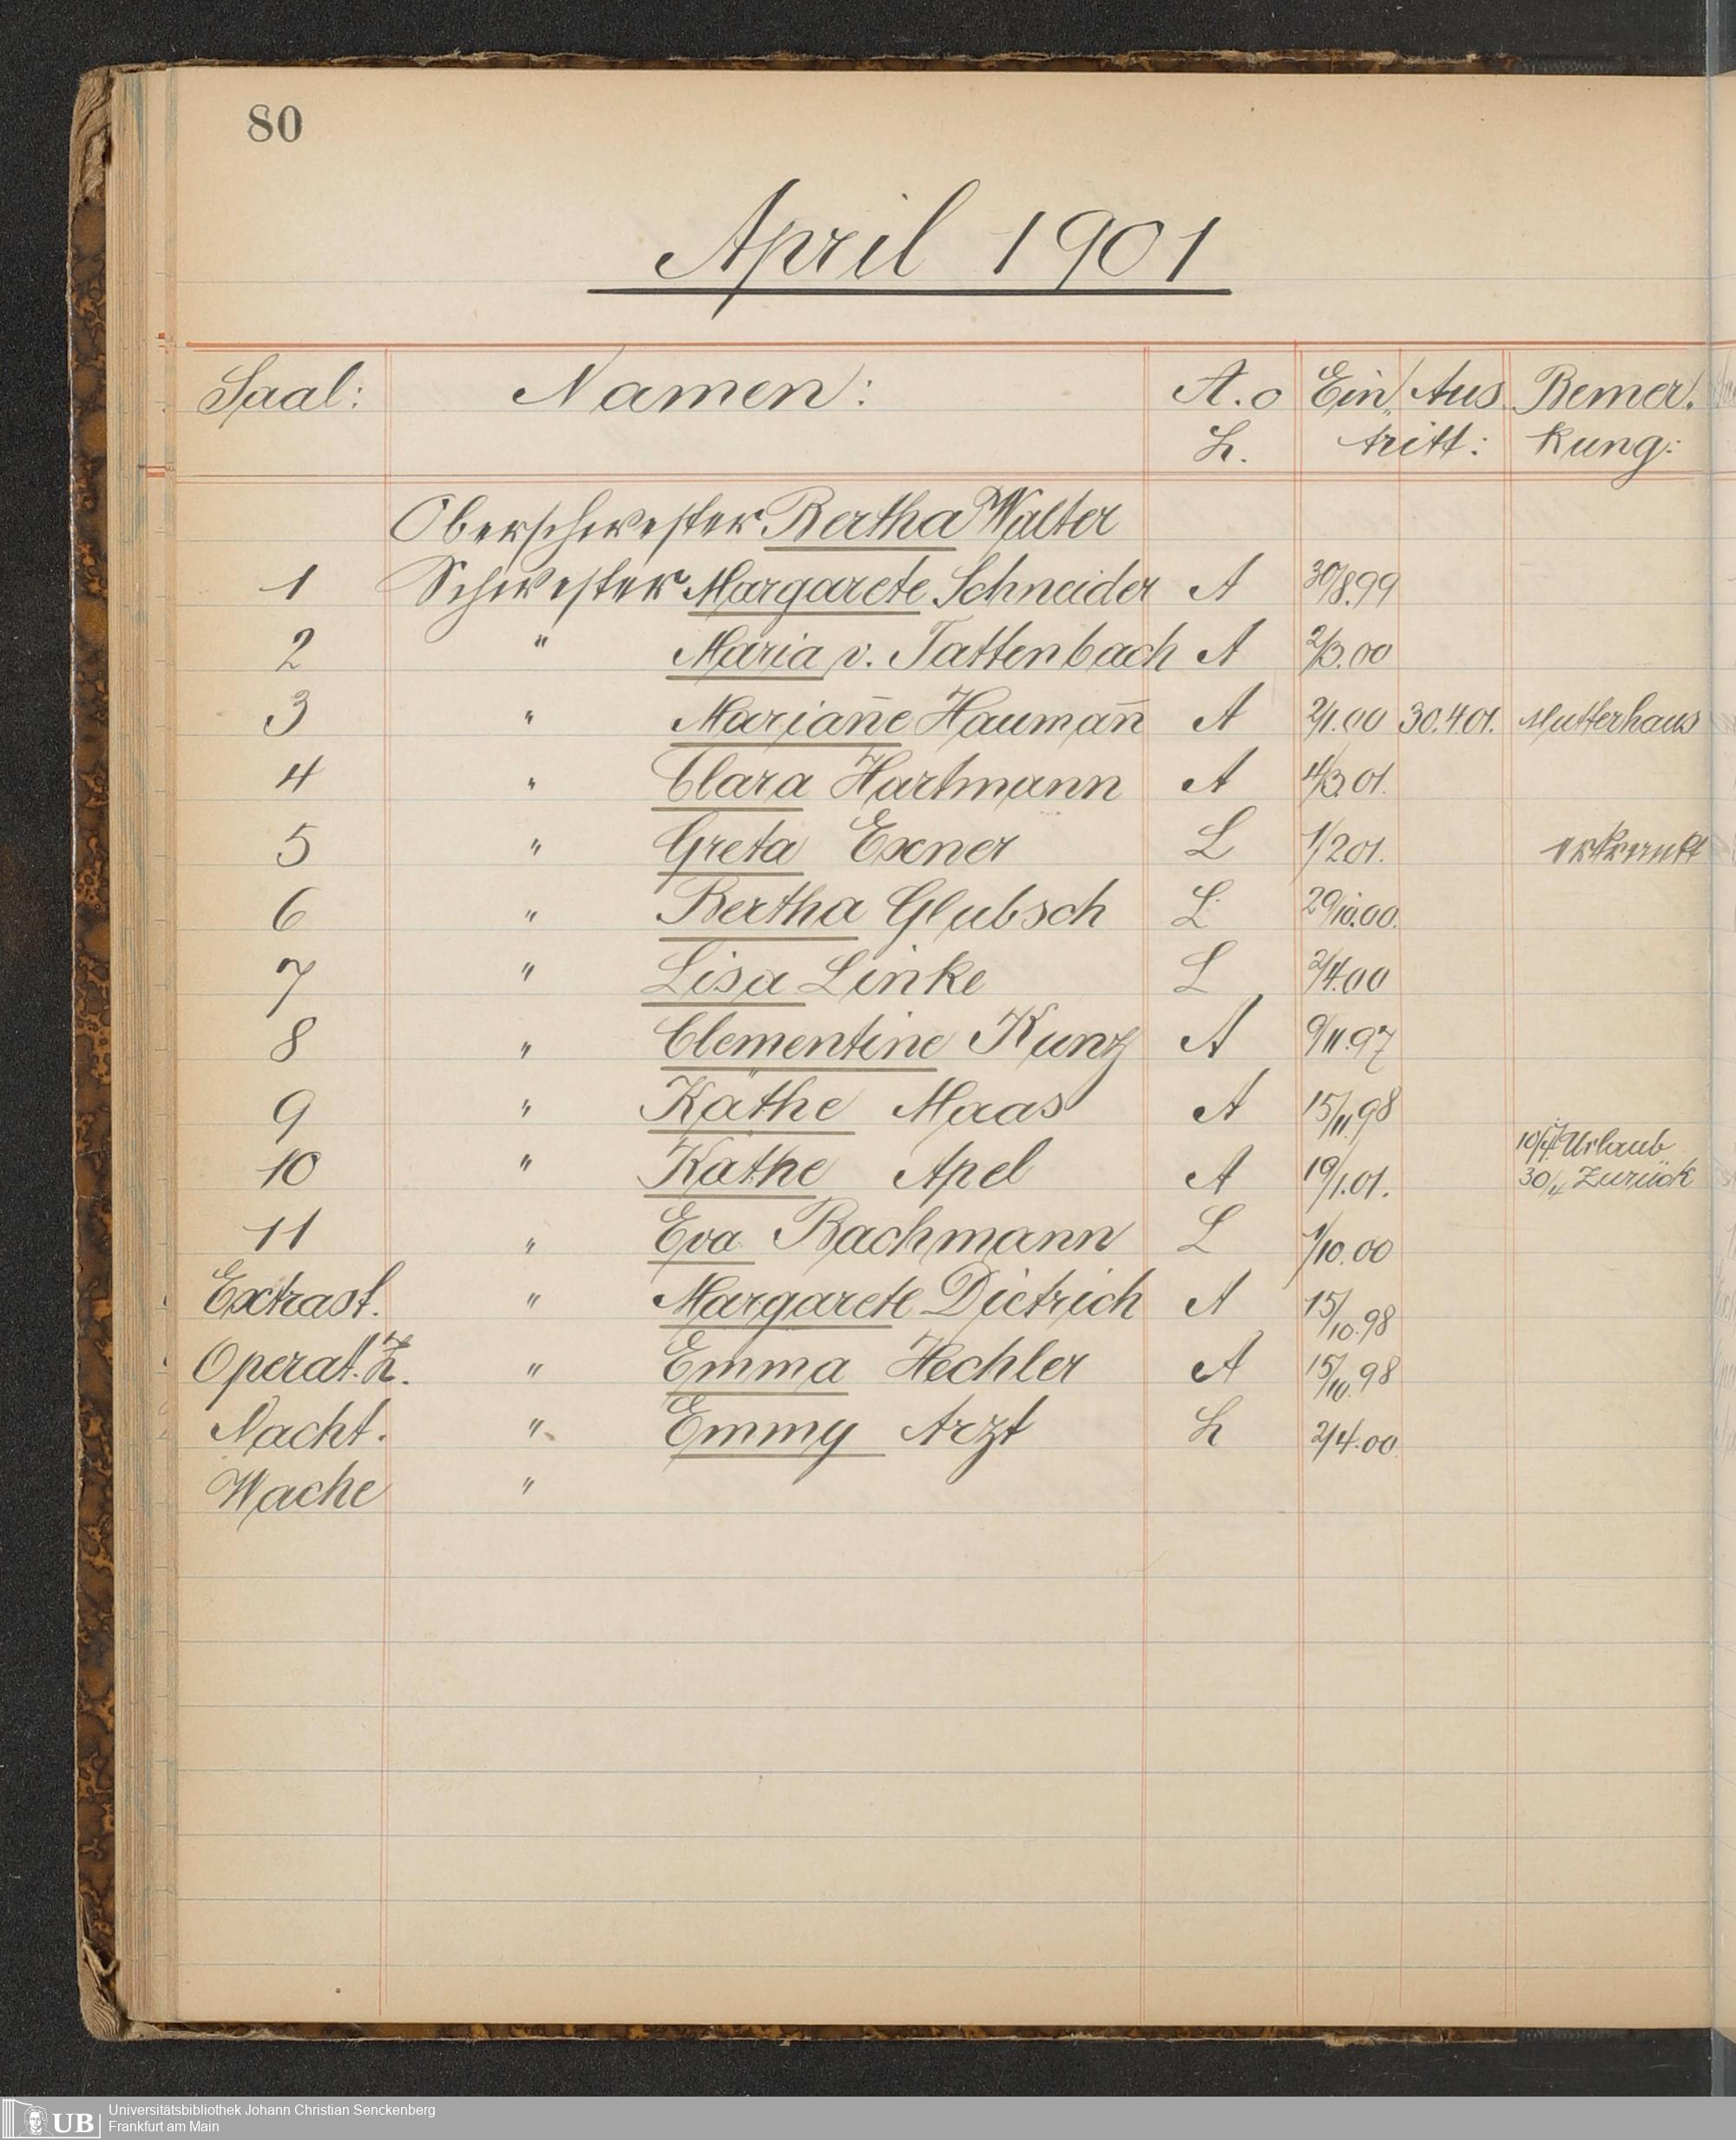 80
April 1901
Saal: Namen: A. o Ein„ Aus Bemer.
L. tritt: kung:
Oberschwester Bertha Walter
1 Schwester Margarete Schneider A 30/8.99
2 " Maria v. Tattenbach A 2/3.00
3 " Marian̄e Hauman̄ A 2/1.00 30.4.01. Mutterhaus
4 " Clara Hartmann A 4/3.01.
5 " Greta Exner L 1/2 01. erkrankt
6 " Bertha Glubsch L 29/10.00.
7 " Lisa Linke L 2/4.00
8 " Clementine Kunz A 9/11.97
9 " Käthe Maas A 15/11.98
10/4. Urlaub
10 " Käthe Apel A 19/1.01. 30/4 Zurück
11 " Eva Bachmann L 1/10.00
Extrast. " Margarete Dietrich A 15/10.98
Operat. Z. " Emma Hechler A 15/10.98
Nacht. " Emmy Arzt L 2/4.00
Wache "
UB
Universitätsbibliothek Johann Christian Senckenberg
Frankfurt am Main